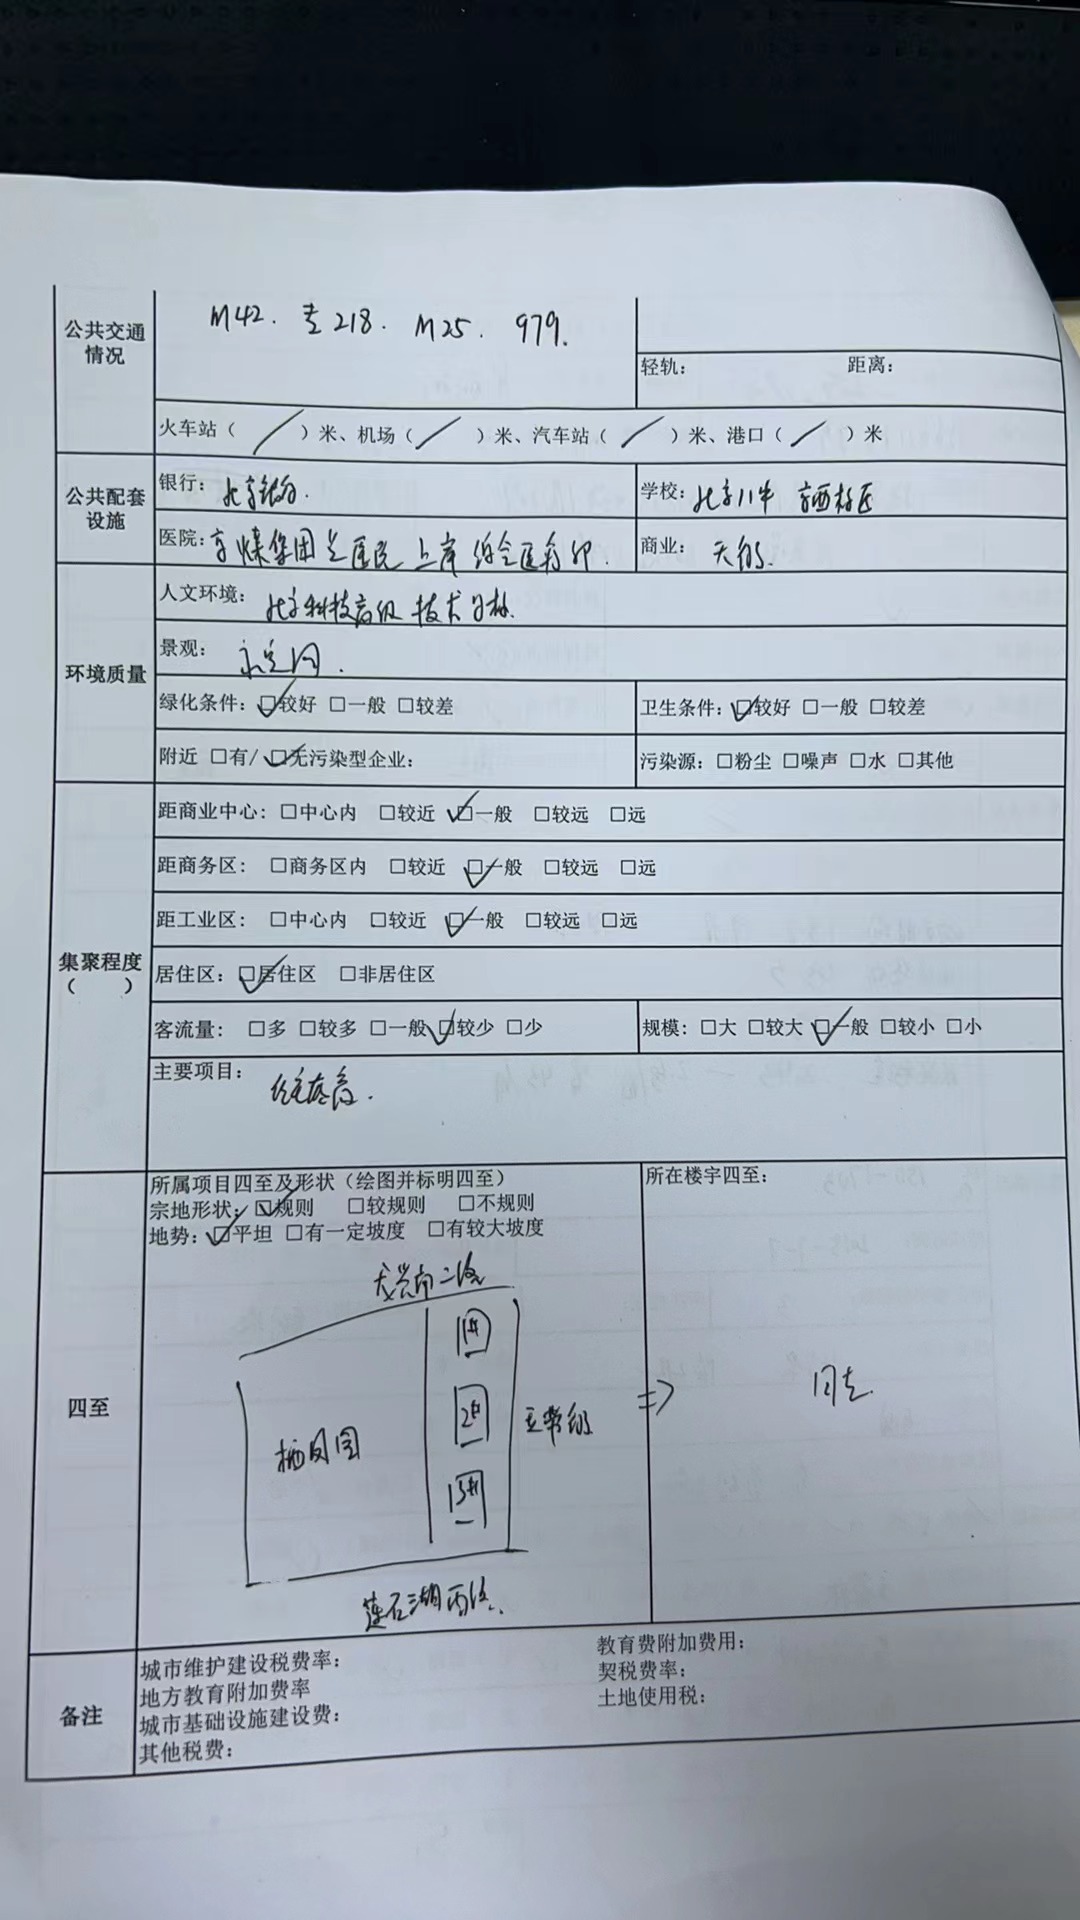 公共交通情况
M42. 专218. M25. 979.
轻轨: 距离:
火车站( / )米、机场( / )米、汽车站( / )米、港口( / )米
公共配套设施
银行: 北京银行.
学校: 北京八中 京西校区
医院: 京煤集团总医院 上岸 综合医疗
商业:
环境质量
人文环境: 北京科技高级技术学校.
景观: 永定河.
绿化条件: ☑较好 □一般 □较差
卫生条件: ☑较好 □一般 □较差
附近 □有/ ☑无污染型企业:
污染源: □粉尘 □噪声 □水 □其他
集聚程度( )
距商业中心: □中心内 □较近 ☑一般 □较远 □远
距商务区: □商务区内 □较近 ☑一般 □较远 □远
距工业区: □中心内 □较近 ☑一般 □较远 □远
居住区: ☑居住区 □非居住区
客流量: □多 □较多 □一般 ☑较少 □少
规模: □大 □较大 ☑一般 □较小 □小
主要项目:
四至
所属项目四至及形状(绘图并标明四至)
宗地形状: ☑规则 □较规则 □不规则
地势: ☑平坦 □有一定坡度 □有较大坡度
所在楼宇四至:
1#
2#
3#
栖凤园
⇒
同左.
莲石湖西路.
备注
城市维护建设税费率:
教育费附加费用:
地方教育附加费率
契税费率:
城市基础设施建设费:
土地使用税:
其他税费: